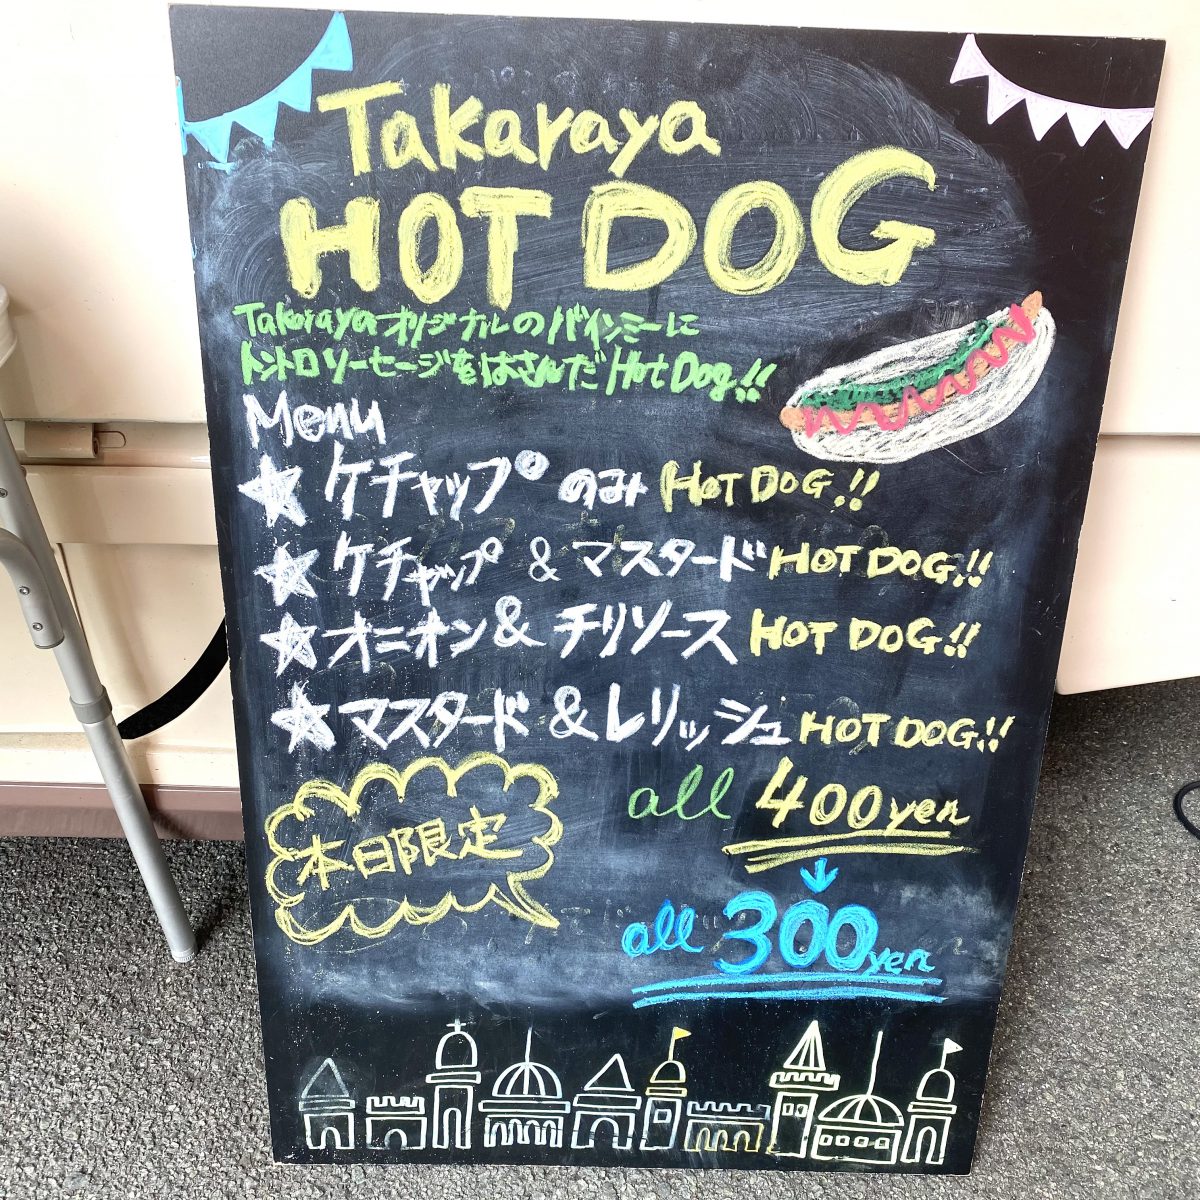 Takaraya
HOT DOG
Takarayaオリジナルのバインミーに
トントロソーセージをはさんだHot Dog!!
Menu
☆ケチャップのみ HOT DOG!!
☆ケチャップ&マスタード HOT DOG!!
☆オニオン&チリソース HOT DOG!!
☆マスタード&レリッシュ HOT DOG!!
本日限定
all 400yen
↓
all 300yen